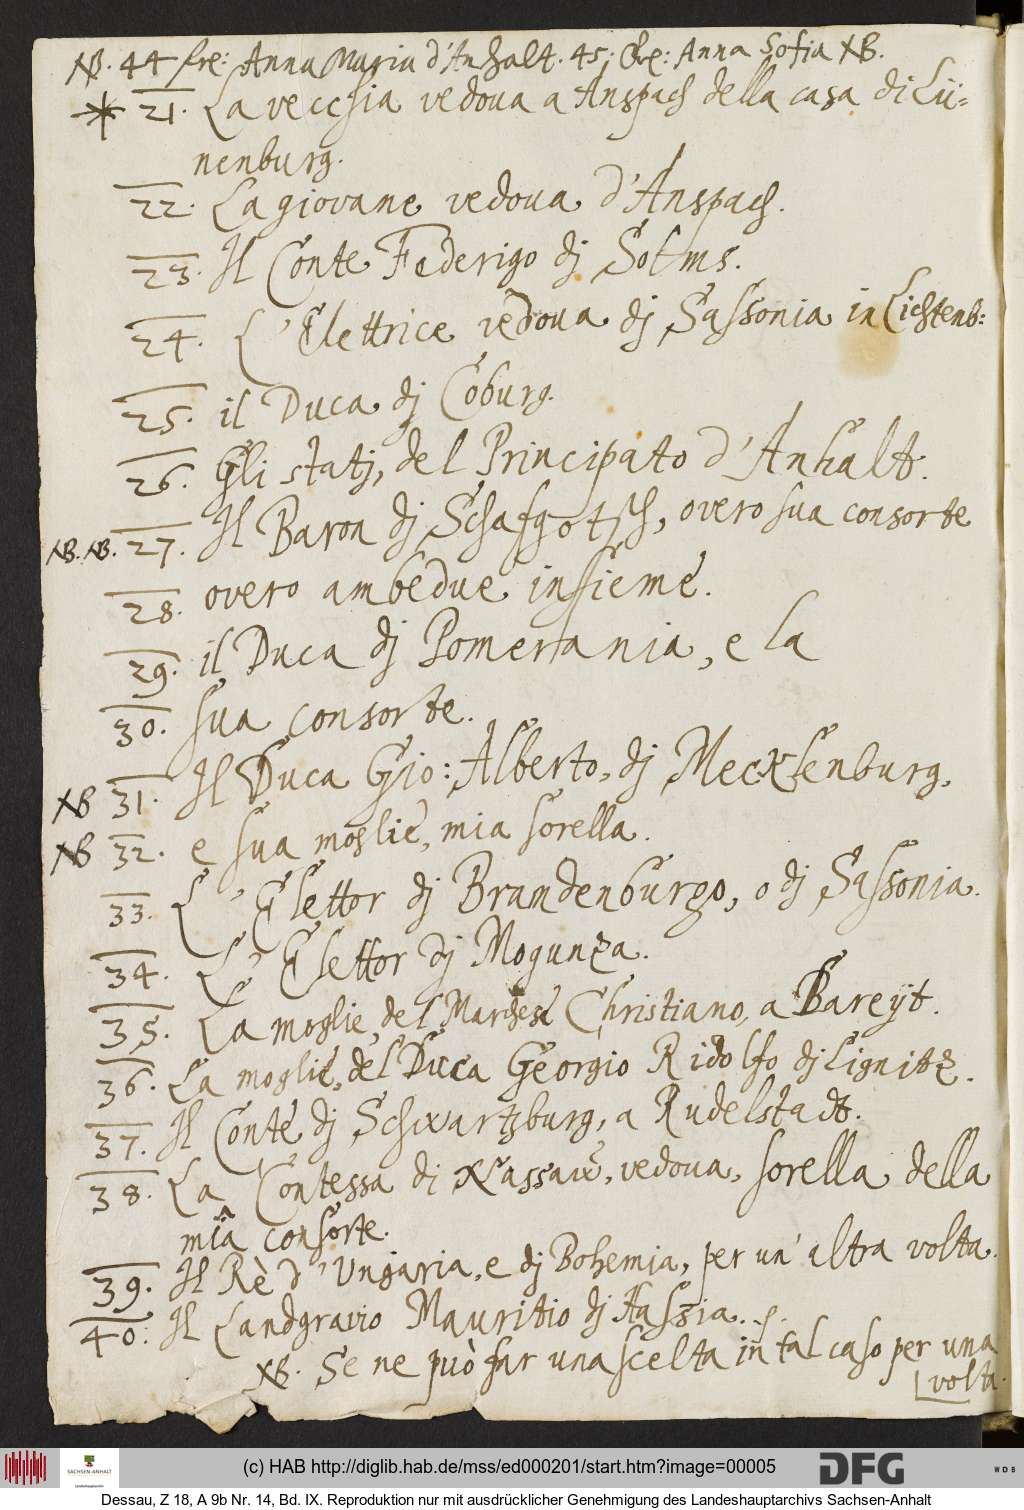 NB. 44 fre: Anna Maria d'Anhalt. 45: Fre: Anna Sofia NB.
* 21. La vecchia vedova a Anspach della casa di Lü=
nenburg.
22. La giovane vedova d'Anspach.
23. Il Conte Federigo dj Solms.
24. L'Elettrice vedova dj Sassonia in Lichtenb:
25. il Duca dj Coburg.
26. Gli statj, del Principato d'Anhalt.
NB. NB. 27. Il Baron dj Schafgotsch, overo sua consorte
28. overo ambedue insieme.
29. il Duca dj Pomerania, e la
30. sua consorte.
NB 31. Il Duca Gio: Alberto, dj Mecklenburg,
NB 32. e sua moglie, mia sorella.
33. L'Elettor dj Brandenburgo, o dj Sassonia.
34. L'Elettor dj Mogunza.
35. La moglie, del Marchese Christiano, a Bareÿt.
36. La moglie, del Duca Georgio Ridolfo dj Lignitz.
37. Il Conte dj Schwartzburg, a Rudelstadt.
38. La Contessa di Nassaw, vedova, sorella della
mia consorte.
39. Il Rè d'Ungaria, e dj Bohemia, per un'altra volta.
40: Il Landgravio Mauritio dj Hassia. .
NB. Se ne può far una scelta in tal caso per una
volta.
(c) HAB http://diglib.hab.de/mss/ed000201/start.htm?image=00005
SACHSEN-ANHALT
Landeshauptarchiv
DFG
WDB
Dessau, Z 18, A 9b Nr. 14, Bd. IX. Reproduktion nur mit ausdrücklicher Genehmigung des Landeshauptarchivs Sachsen-Anhalt